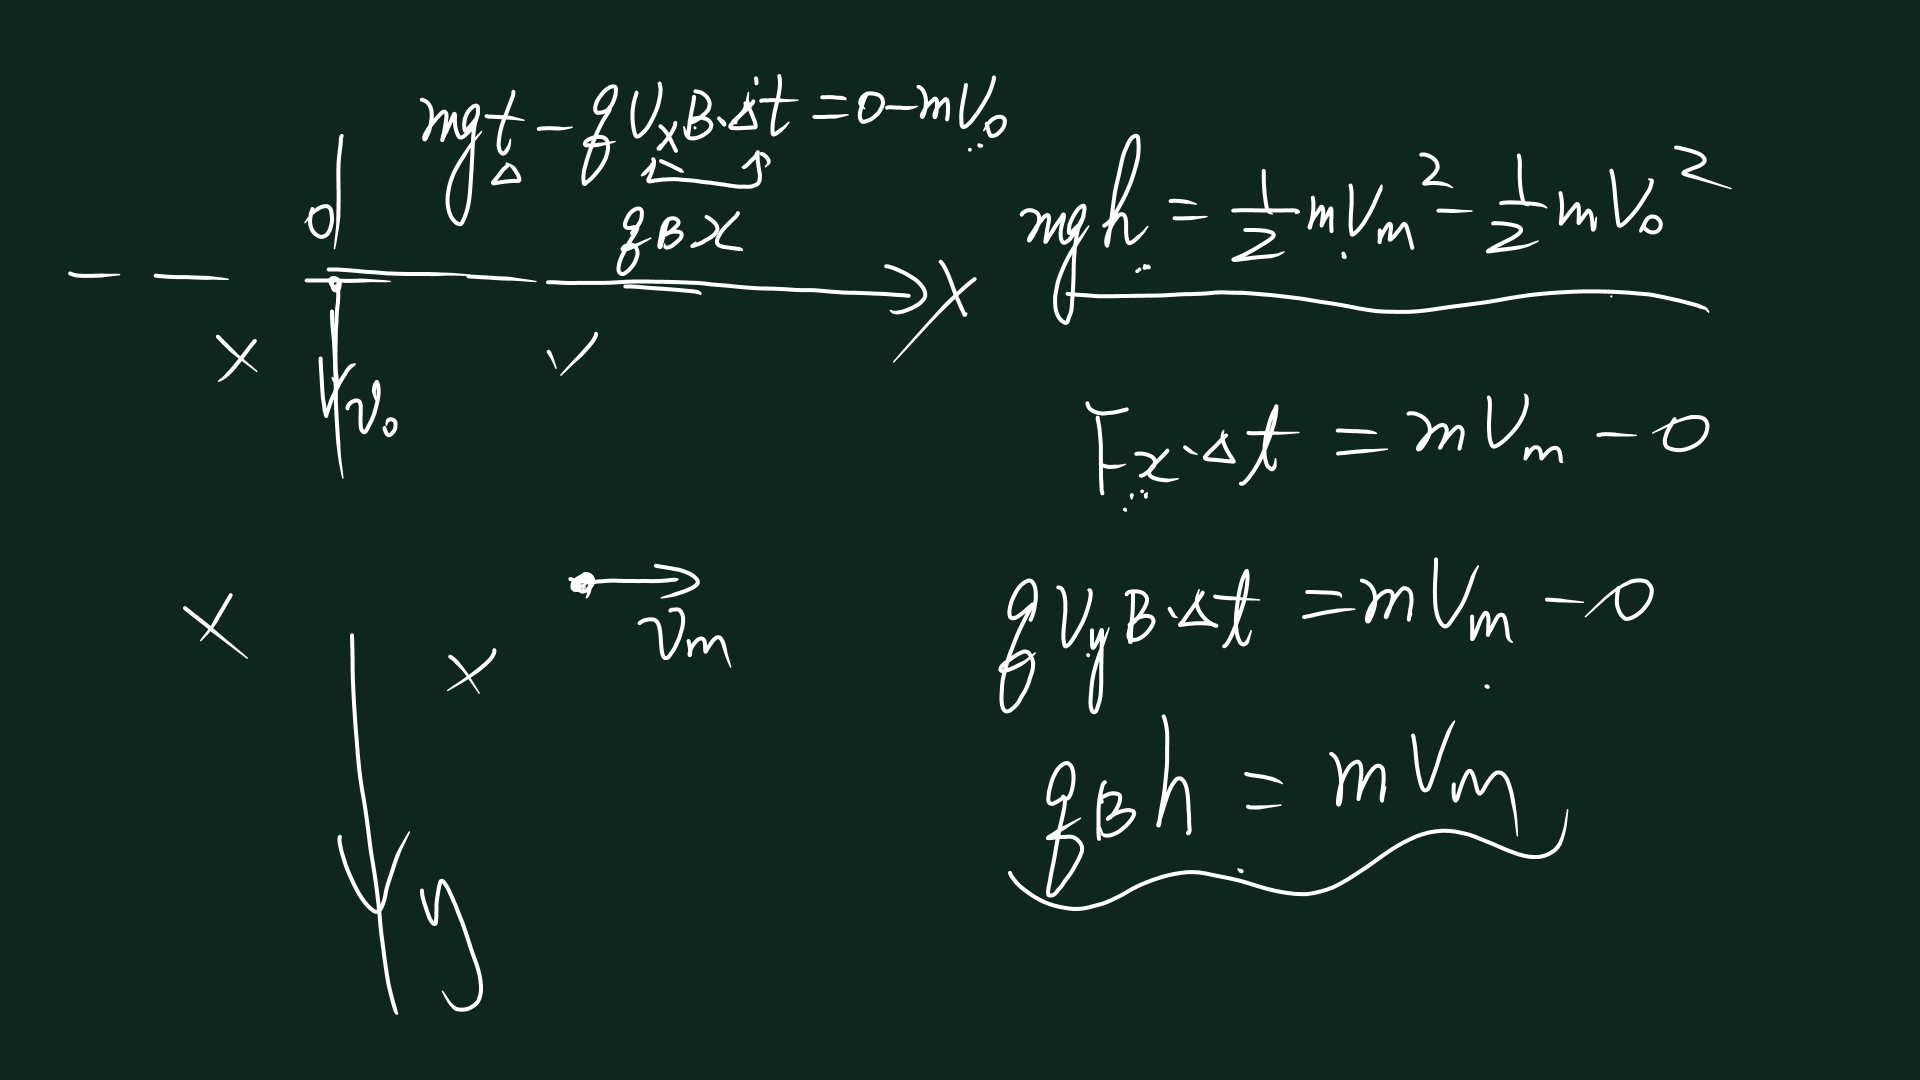 mgt - qVₓB·Δt = 0 - mV₀
Δ
qBx
d
x
v₀
vₘ
y
mgh = 1/2 mVₘ² - 1/2 mV₀²
Fx·Δt = mVₘ - 0
qVyB·Δt = mVₘ - 0
qBh = mVₘ